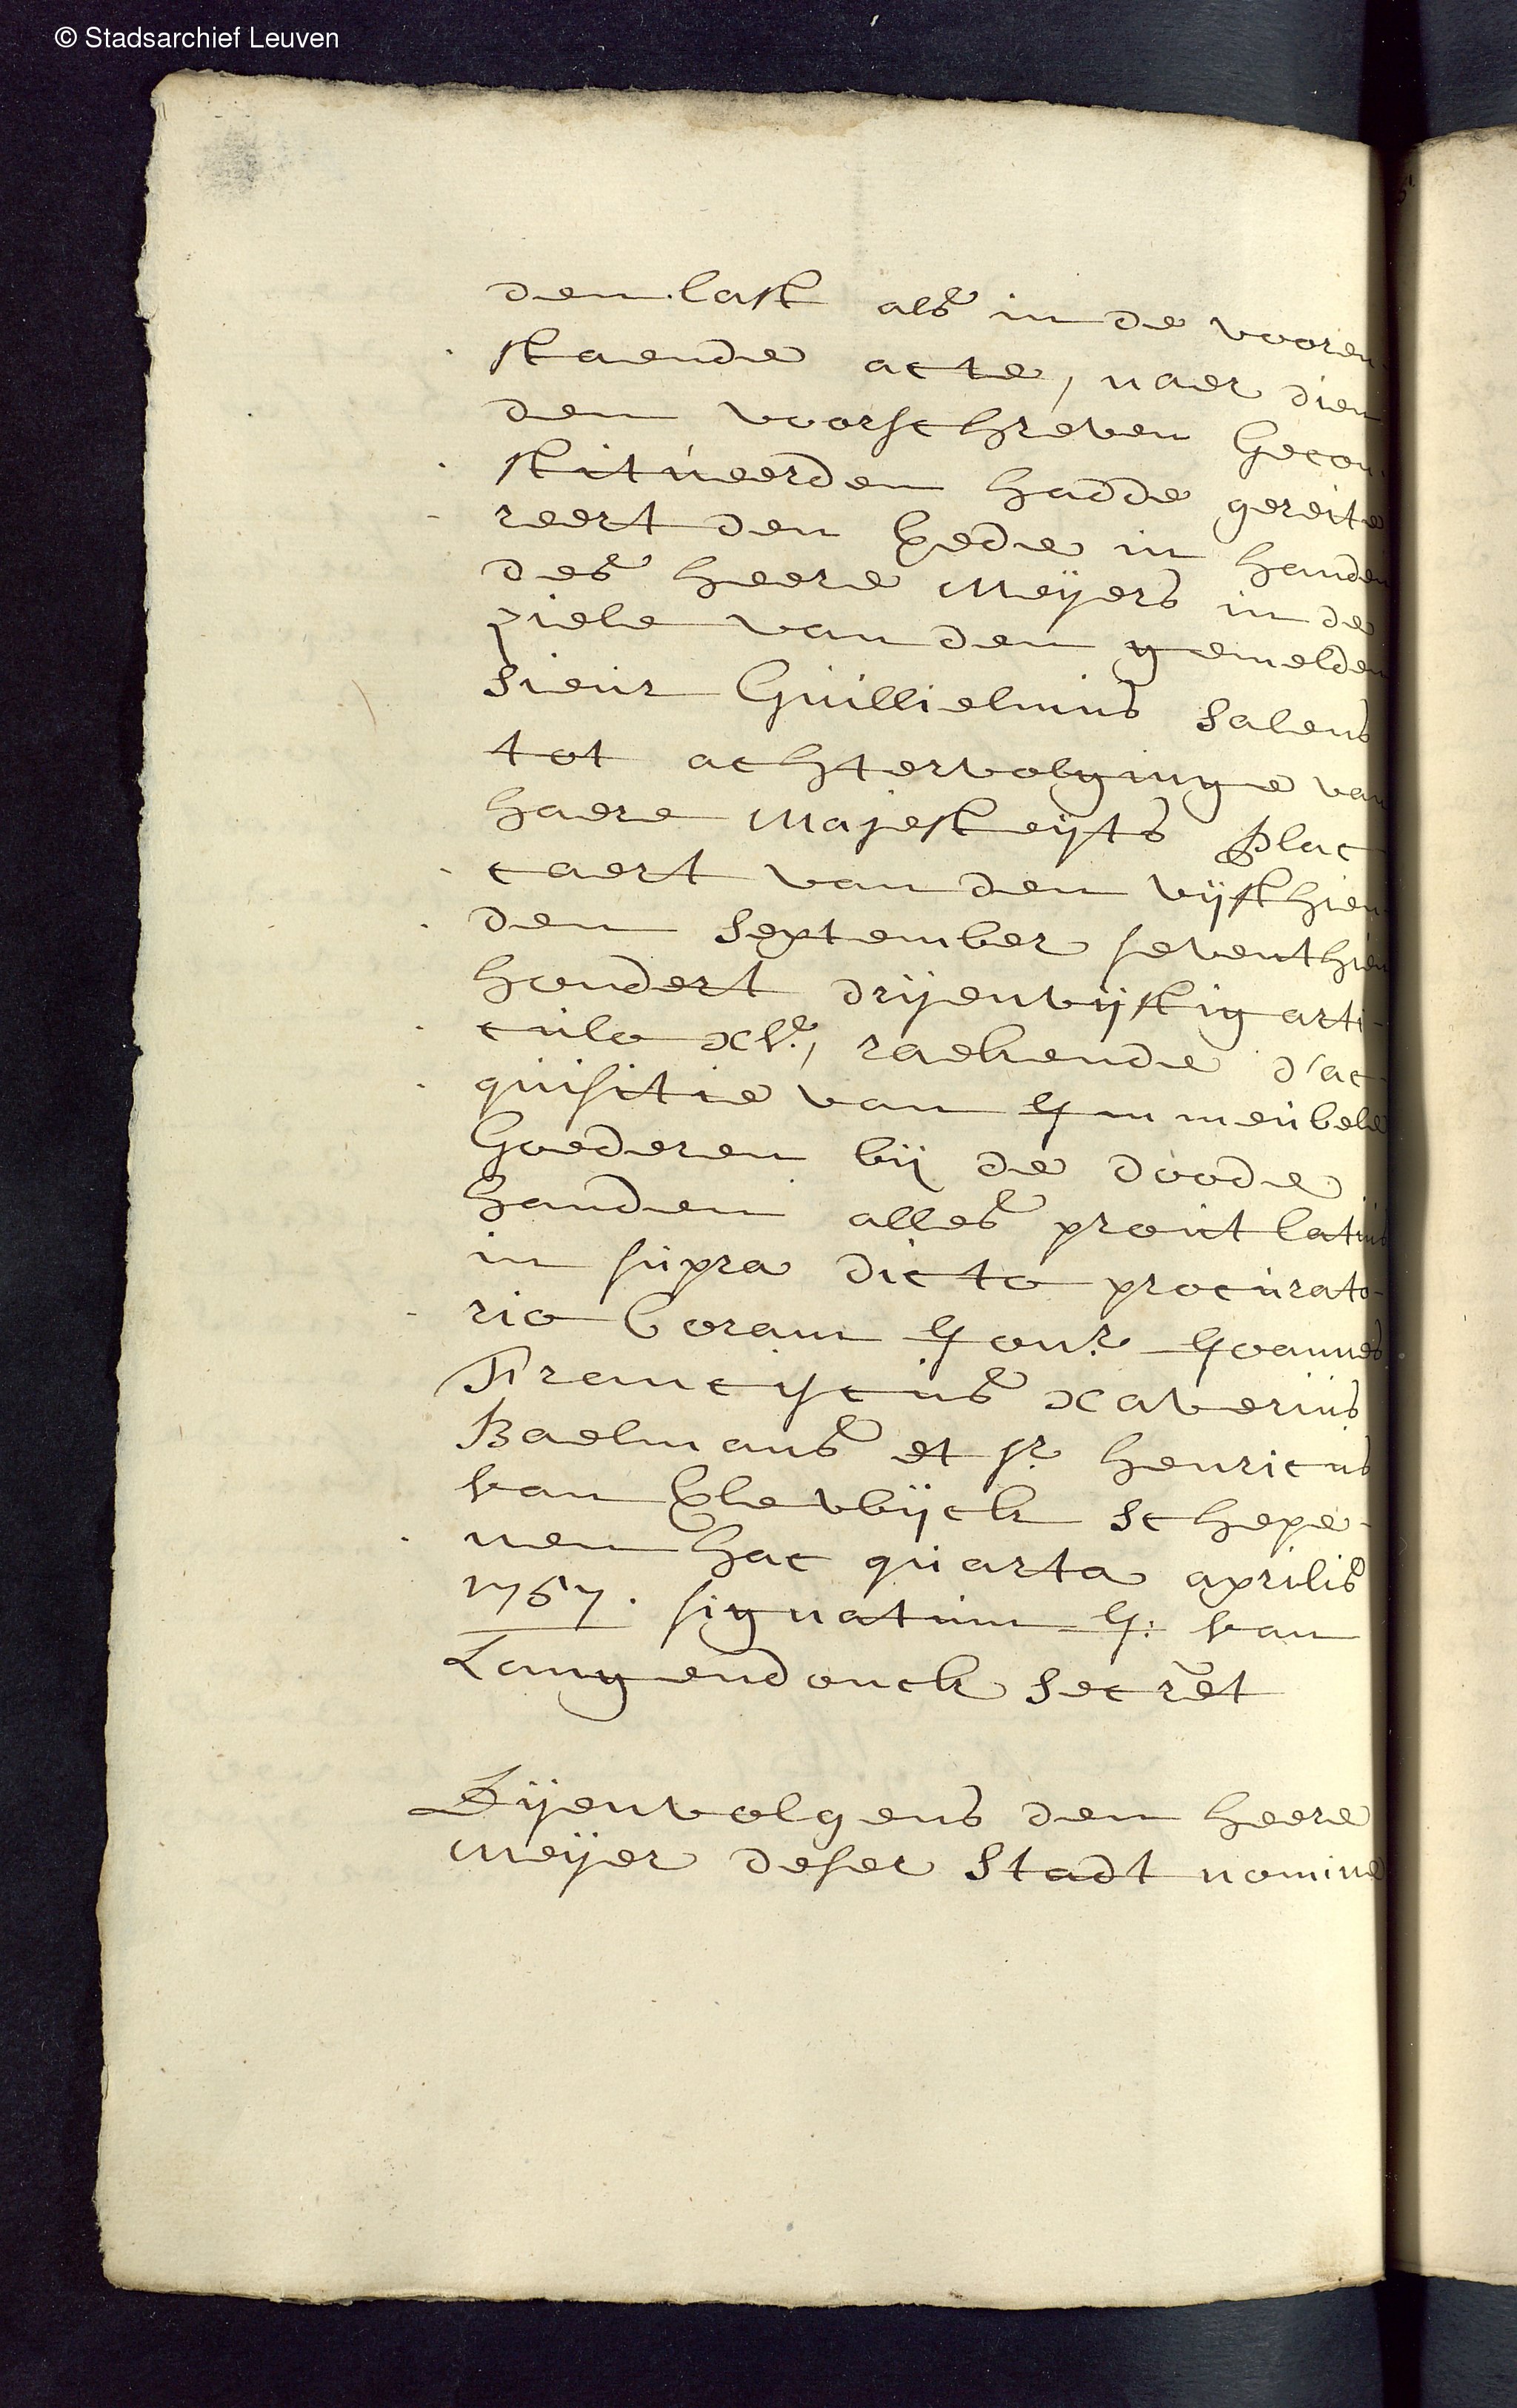 © Stadsarchief Leuven
den last als in de vooren
staende acte, naer dien
den voorschreven Gecon
stitueerden hadde gereite
reert den Eede in handen
des heere Meyers in de
ziele van den gemelden
Sieur Guillielmus Salens
tot achtervolginge van
haere Majesteyts Plac
caert van den vijfthien
den September seventhien
hondert drijenvijftig arti-
culo xv.e, raekende d'ac
quisitie van Immeubele
Goederen bij de doode
handen alles prout latius
in supra dicto procurato-
rio Coram Jonr. Joannes
Franciscus Xaverius
Baelmans et sr. Henricus
van Elewijck Schepe-
nen hac quarta aprilis
1757. signatum J: van
Langendonck Secret

Bijenvolgens den heere
Meijer deser Stadt nomine